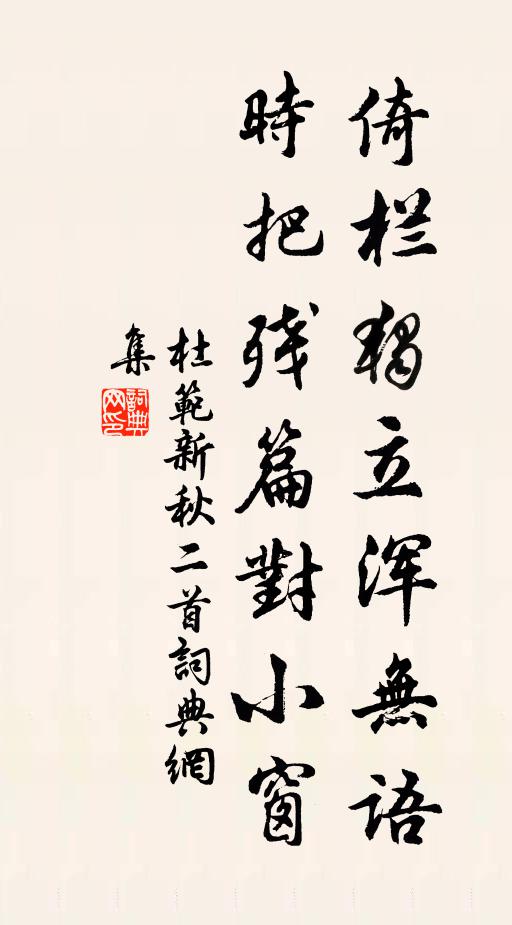 倚栏獨立浑無語
時把残篇對小窗
杜範新秋二首詞典網
集
詞典
网印